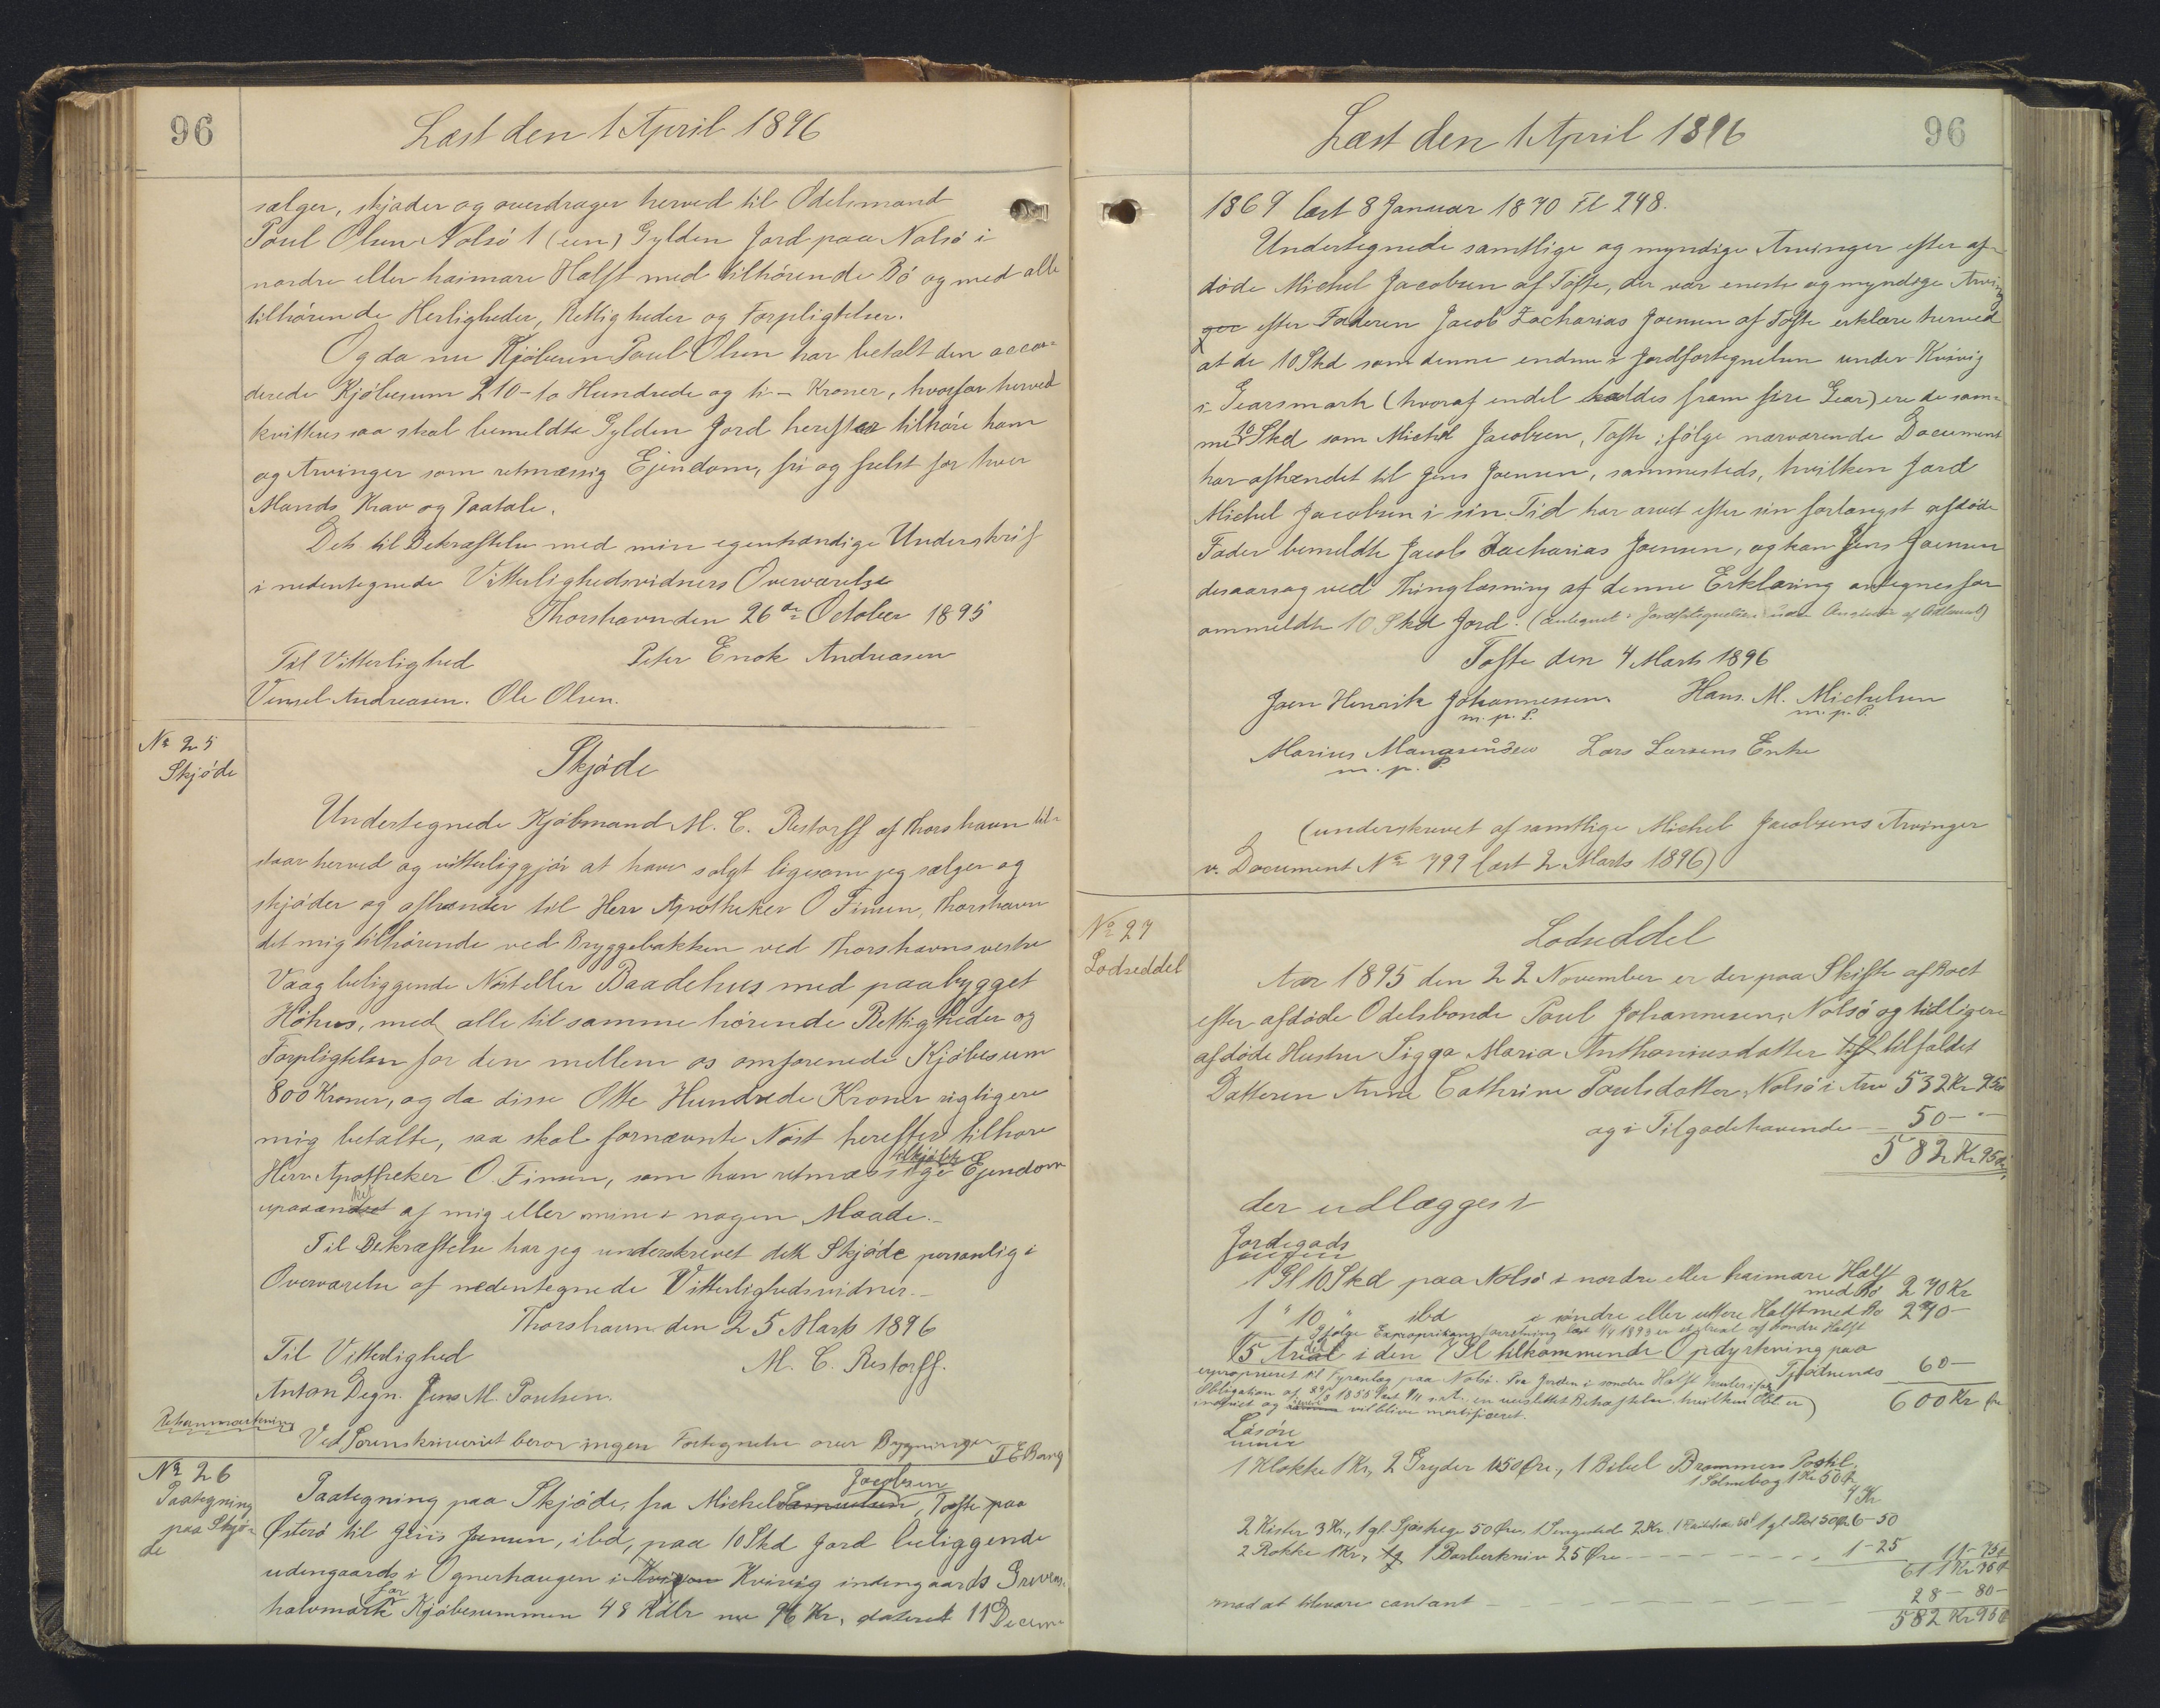 96
Læst den 1 April 1896
sælger, skjøder og overdrager herved til Odelsmand
Poul Olsen Nolsö 1 (een) Gylden Jord paa Nolsö i
nordre eller haimare Halft med tilhörende Bö og med alle
tilhörende Herligheder, Rettigheder og Forpligtelser.
Og da nu Kjöberen Poul Olsen har betalt den accor-
derede Kjöbesum 210 - to Hundrede og ti - Kroner, hvorfor herved
kvitteres saa skal bemeldte Gylden Jord herefter tilhöre ham
og Arvinger som retmæssig Ejendom, fri og frelst for hver
Mands Krav og Paatale.
Dets til Bekræftelse med min egenhændige Underskrift
i nedentegnede Vitterlighedsvidners Overværelse
Thorshavn den 26de October 1895
Til Vitterlighed Peter Enok Andreasen
Vensel Andreasen. Ole Olsen.
No 25
Skjöde
Skjöde
Undertegnede Kjöbmand M. C. Restorff af Thorshavn til-
staar herved og vitterliggjör at have solgt ligesom jeg sælger og
skjöder og afhænder til Herr Apotheker O Finsen, Thorshavn
det mig tilhörende ved Bryggebakken ved Thorshavns vestre
Vaag beliggende Nöst eller Baadehus med paabygget
Höhus, med alle til samme hörende Rettigheder og
Forpligtelser for den mellem os omforenede Kjöbesum
800 Kroner, og da disse Otte Hundrede Kroner rigtigere
mig betalte, saa skal fornævnte Nöst herefter tilhöre
Herr Apotheker O. Finsen, som han retmæssige tilkjöbte Ejendom
upaaanket af mig eller mine i nogen Maade.-
Til Bekræftelse har jeg underskrevet dette Skjöde personlig i
Overværelse af nedentegnede Vitterlighedsvidner.-
Thorshavn den 25 Marts 1896
Til Vitterlighed M. C. Restorff.
Anton Degn. Jens M. Poulsen.
Retsanmærkning
Ved Sorenskriveriet beror ingen Fortegnelse over Bygninger T E Bang
No 26
Paategning
paa Skjö-
de
Paategning paa Skjöde, fra Michel Samuelsen Jacobsen, Tofte paa
Österö til Jens Jensen, ibd, paa 10 Skd Jord beliggende
udengaards i Ognerhaugen i Kvivig indengaards
halvmark for Kjöbesummen 48 Rdlr nu 96 Kr, dateret 11 Decem-
Læst den 1 April 1896
96
1869 læst 8 Januar 1870 Fl 248.
Undertegnede samtlige og myndige Arvinger efter af-
döde Michel Jacobsen af Tofte, der var eneste og myndige Arvin
ger efter Faderen Jacob Zacharias Joensen af Tofte erklære herved
at de 10 Skd som denne endnu i Jordfortegnelsen under Kvivig
i Gearsmark (hvoraf endel kaldes fram fire Gear) ere de sam-
me 10 Skd som Michel Jacobsen, Tofte ifölge nærværende Document
har afhændet til Jens Joensen, sammesteds, hvilken Jord
Michel Jacobsen i sin Tid har arvet efter sin forlængst afdöde
Fader bemeldte Jacob Zacharias Joensen, og kan Jens Joensen
desaarsag ved Thinglæsning af denne Erklæring antegnes for
ommeldte 10 Skd Jord. (antegnet i Jordfortegnelsen
Tofte den 4 Marts 1896
Joen Henrik Johannessen Hans. M. Michelsen
m. p. P. m. p. P.
Marius Lars Larsens Enke
m. p. P.
(underskrevet af samtlige Michel Jacobsens Arvinger
v. Document No 799 læst 2 Marts 1896)
No 27
Lodseddel
Lodseddel
Aar 1895 den 22 November er der paa Skifte af Boet
efter afdöde Odelsbonde Poul Johannesen, Nolsö og tidligere
afdöde Hustru Sigga Maria Anthoniusdatter tilfaldet
Datteren Anne Cathrine Poulsdatter, Nolsö i Arv 532 Kr 95ö
og i Tilgodehavende 50 - "-
582 Kr 95ö
der udlægges i
Jordegods
1 Gl 10 Skd paa Nolsö i nordre eller haimare Half
med Bö 270 Kr
1 " 10 " ibd i söndre eller uttere Halft med Bö 270 -
Ifölge Expropriations forretning læst 1893 er et Areal af söndre Halft
1/5 Areal i den 7 Gl tilkommende Opdyrkning paa
Tjödnends 60 -
exproprieret til Fyranlæg paa Nolsö. Fra Jorden i söndre Halft
Obligation af en uudslettet Behæftelse, hvilken Obl er
indfriet og vil blive mortificeret.
600 Kr Öre
Lösöre
1 Klokke 1 Kr, 2 Gryder 150 Öre, 1 Bibel Brammers Postil,
1 Salmebog 1 Kr 50 ö
4 Kr
2 Kister 3 Kr, 1 gl. 50 Öre, 1 Sengested 2 Kr, 1 gl 50 ö 6-50
2 Rokke 1 Kr, 1 Barberkniv 25 Öre 1-25 11-75ö
611 Kr 75ö
mod at tilsvare contant 28 - 80 -
582 Kr 95ö